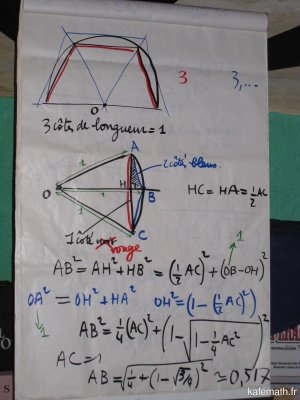 3 3,...
O
3 côtés de longueur = 1
A
1
2 côtés bleus
O
H
1
B
HC = HA = 1/2 AC
1
C
1 côté rouge
1
AB² = AH² + HB² = (1/2 AC)² + (OB-OH)²
OA² = OH² + HA² OH² = (1 - (1/2 AC)²)
1
AB² = 1/4 (AC)² + (1 - √(1 - 1/4 AC²))²
AC = 1
AB = √(1/4 + (1 - √3/4)²) ≈ 0,517
katemath.fr